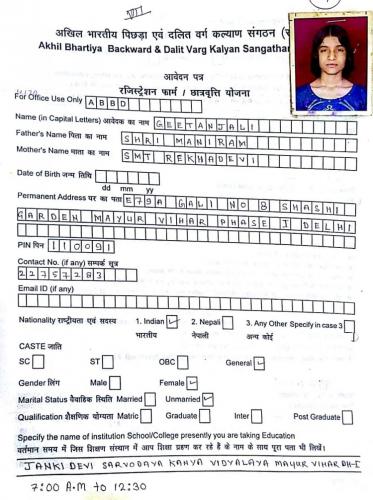 VII
अखिल भारतीय पिछड़ा एवं दलित वर्ग कल्याण संगठन
Akhil Bhartiya Backward & Dalit Varg Kalyan Sangathan
आवेदन पत्र
रजिस्ट्रेशन फार्म / छात्रवृत्ति योजना
For Office Use Only ABBD
Name (in Capital Letters) आवेदक का नाम GEETANJALI
Father's Name पिता का नाम SHRI MANIRAM
Mother's Name माता का नाम SMT REKHADEVI
Date of Birth जन्म तिथि
dd mm yy
Permanent Address घर का पता E79A GALI NO 8 SHASHI
GARDEN MAYUR VIHAR PHASE I DELHI
PIN पिन 110091
Contact No. (if any) सम्पर्क सूत्र
22757283
Email ID (if any)
Nationality राष्ट्रीयता एवं सदस्य 1. Indian ✓ 2. Nepali 3. Any Other Specify in case 3
भारतीय नेपाली अन्य कोई
CASTE जाति
SC ST OBC General ✓
Gender लिंग Male Female ✓
Marital Status वैवाहिक स्थिति Married Unmarried ✓
Qualification शैक्षणिक योग्यता Matric Graduate Inter Post Graduate
Specify the name of institution School/College presently you are taking Education
वर्तमान समय में जिस शिक्षण संस्थान में आप शिक्षा ग्रहण कर रहे हैं के नाम सके साथ पूरा पता भी लिखें।
JANKI DEVI SARVODAYA KANYA VIDYALAYA MAYUR VIHAR PH-I
7:00 A.M to 12:30